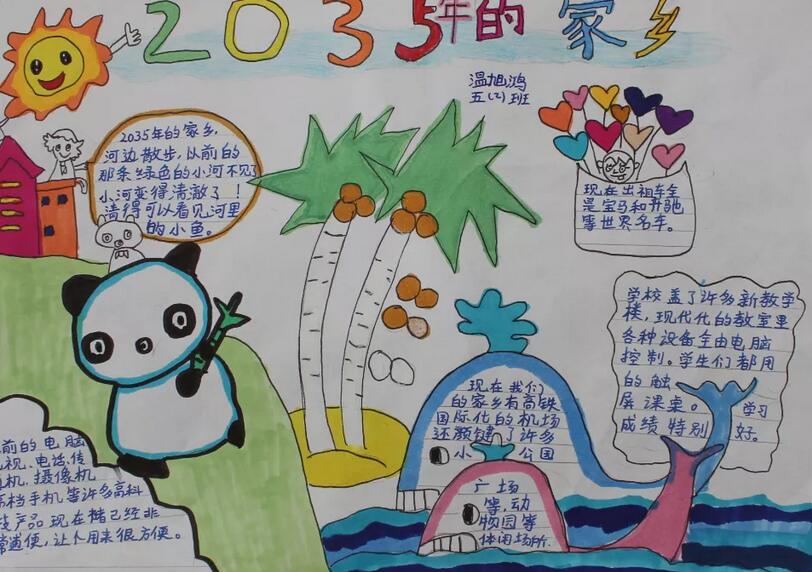 2035年的家乡
温旭鸿
五(2)班
2035年的家乡,
河边散步,以前的
那条绿色的小河不见了
小河变得清澈了!
清得可以看见河里
的小鱼。
现在出租车全
是宝马和奔驰
等世界名车。
学校盖了许多新教学
楼,现代化的教室里
各种设备全由电脑
控制。学生们都用
的触
屏课桌。学习
成绩特别好。
现在我们
的家乡有高铁
国际化的机场
还新建了许多
小公园
广场
等,动
物园等
休闲场所.
前的电脑
视、电话、传
机、摄像机
高档手机等许多高科
产品现在都已经非
常普便,让个用来很方便。